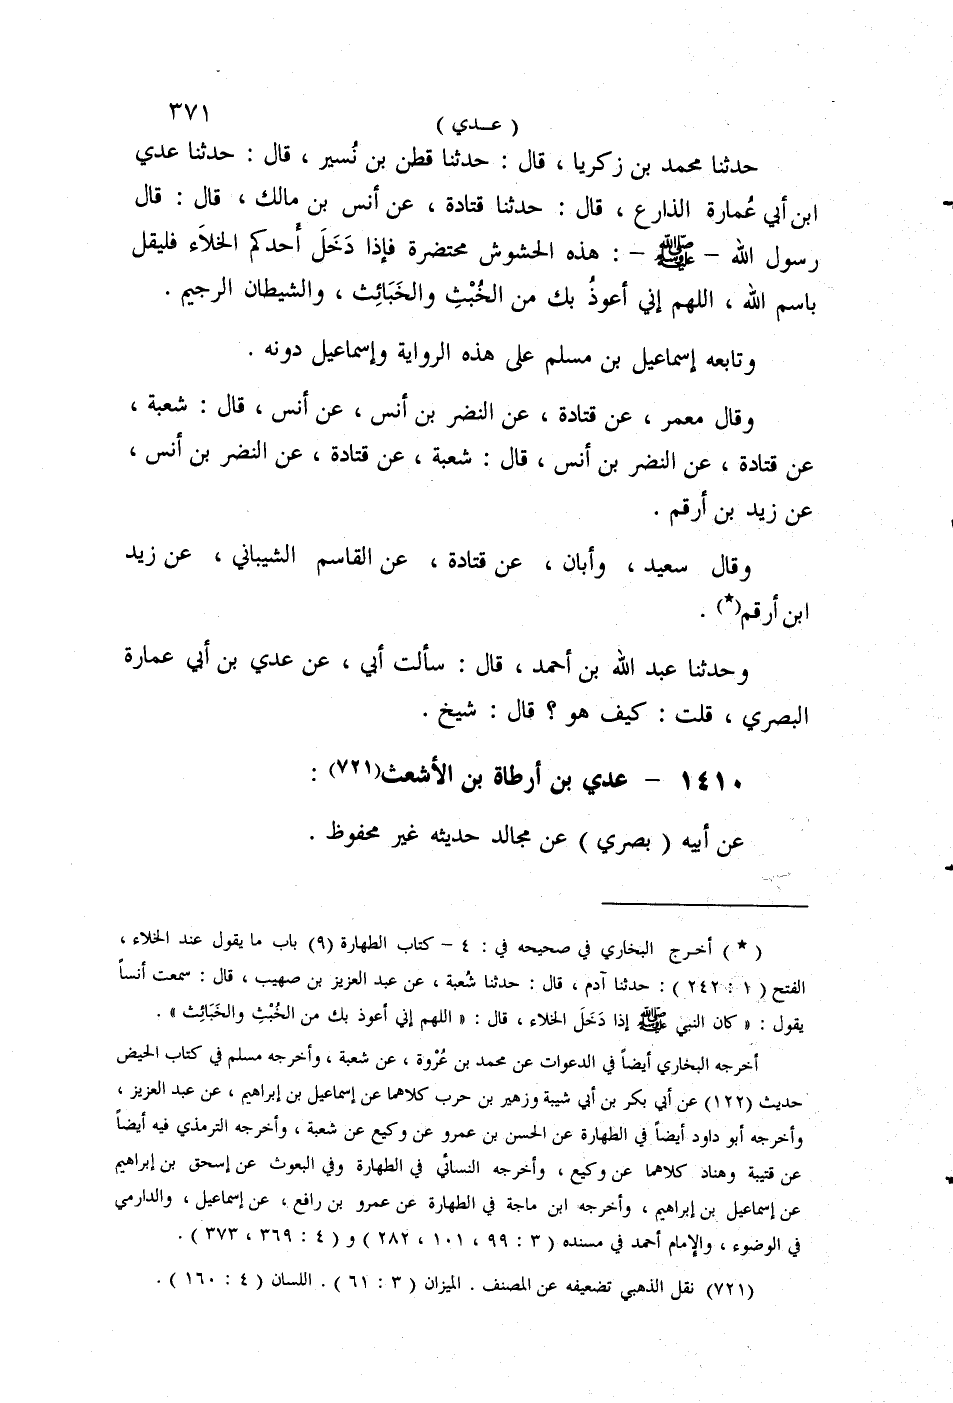 ٣٧١
( عـدي )
حدثنا محمد بن زكريا ، قال : حدثنا قطن بن نُسير ، قال : حدثنا عدي
ابن أبي عُمارة الذارع ، قال : حدثنا قتادة ، عن أنس بن مالك ، قال : قال
رسول الله – ﷺ – : هذه الحشوش محتضرة فإذا دَخَلَ أَحدكم الخلَاء فليقل
باسم الله ، اللهم إني أعوذُ بك من الخُبْثِ والخَبَائِث ، والشيطان الرجيم .
وتابعه إسماعيل بن مسلم على هذه الرواية وإسماعيل دونه .
وقال معمر ، عن قتادة ، عن النضر بن أنس ، عن أنس ، قال : شعبة ،
عن قتادة ، عن النضر بن أنس ، قال : شعبة ، عن قتادة ، عن النضر بن أنس ،
عن زيد بن أرقم .
وقال سعيد ، وأبان ، عن قتادة ، عن القاسم الشيباني ، عن زيد
ابن أرقم(*) .
وحدثنا عبد الله بن أحمد ، قال : سألت أبي ، عن عدي بن أبي عمارة
البصري ، قلت : كيف هو ؟ قال : شيخ .
١٤١٠ – عدي بن أرطاة بن الأشعث(٧٢١) :
عن أبيه ( بصري ) عن مجالد حديثه غير محفوظ .
( * ) أخرج البخاري في صحيحه في : ٤ – كتاب الطهارة (٩) باب ما يقول عند الخلاء ،
الفتح ( ١ : ٢٤٢ ) : حدثنا آدم ، قال : حدثنا شُعبة ، عن عبد العزيز بن صهيب ، قال : سمعت أنساً
يقول : « كان النبي ﷺ إذا دَخَلَ الخلاء ، قال : « اللهم إني أعوذ بك من الخُبْثِ والخَبَائِث » .
أخرجه البخاري أيضاً في الدعوات عن محمد بن عُرْوة ، عن شعبة ، وأخرجه مسلم في كتاب الحيض
حديث (١٢٢) عن أبي بكر بن أبي شيبة وزهير بن حرب كلاهما عن إسماعيل بن إبراهيم ، عن عبد العزيز ،
وأخرجه أبو داود أيضاً في الطهارة عن الحسن بن عمرو عن وكيع عن شعبة ، وأخرجه الترمذي فيه أيضاً
عن قتيبة وهناد كلاهما عن وكيع ، وأخرجه النسائي في الطهارة وفي البعوث عن إسحق بن إبراهيم
عن إسماعيل بن إبراهيم ، وأخرجه ابن ماجة في الطهارة عن عمرو بن رافع ، عن إسماعيل ، والدارمي
في الوضوء ، والإمام أحمد في مسنده ( ٣ : ٩٩ ، ١٠١ ، ٢٨٢ ) و ( ٤ : ٣٦٩ ، ٣٧٣ ) .
(٧٢١) نقل الذهبي تضعيفه عن المصنف . الميزان ( ٣ : ٦١ ) . اللسان ( ٤ : ١٦٠ ) .